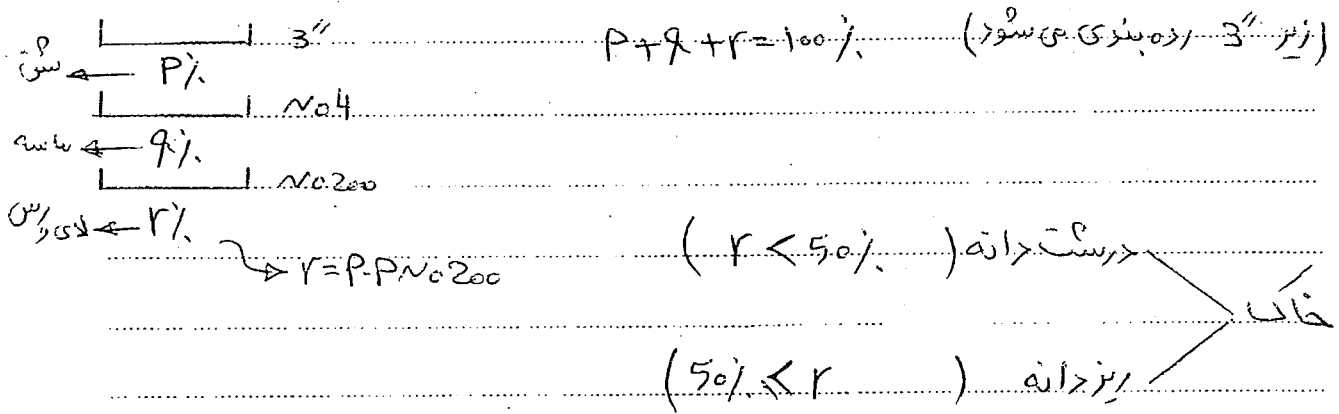 3″ P+q+r=100% (زیر 3″ رده بندی می شود)
شن ← P%
No4
ماسه ← q%
No200
لای و رس ← r%
r=P.PNo200
درشت دانه (r < 50%)
خاک
ریز دانه (50% < r)